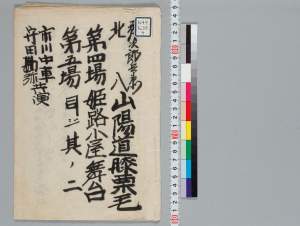 弥次郎兵衛
北八
山陽道膝栗毛
第四場姫路小屋舞台
第五場同ジ其ノ二
市川中車
守田勘弥共演